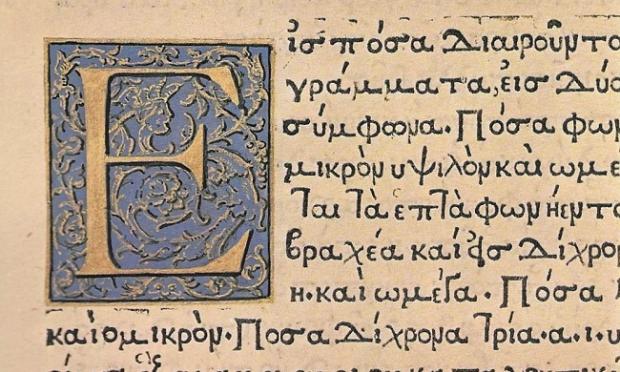 Εἰσ πόσα Διαιροῦντα
γράμματα, εἰσ Δύο
σύμφωνα. Πόσα φων
μικρὸν υψιλὸν καὶ ωμε
ται τὰ επτὰ φωνήεντα
βραχέα καὶ εἰσ Δίχρον
η. καὶ ωμέγα. Πόσα
καὶ ο μικρὸν. Ποσα Δίχρονα τρία. α. ι. υ